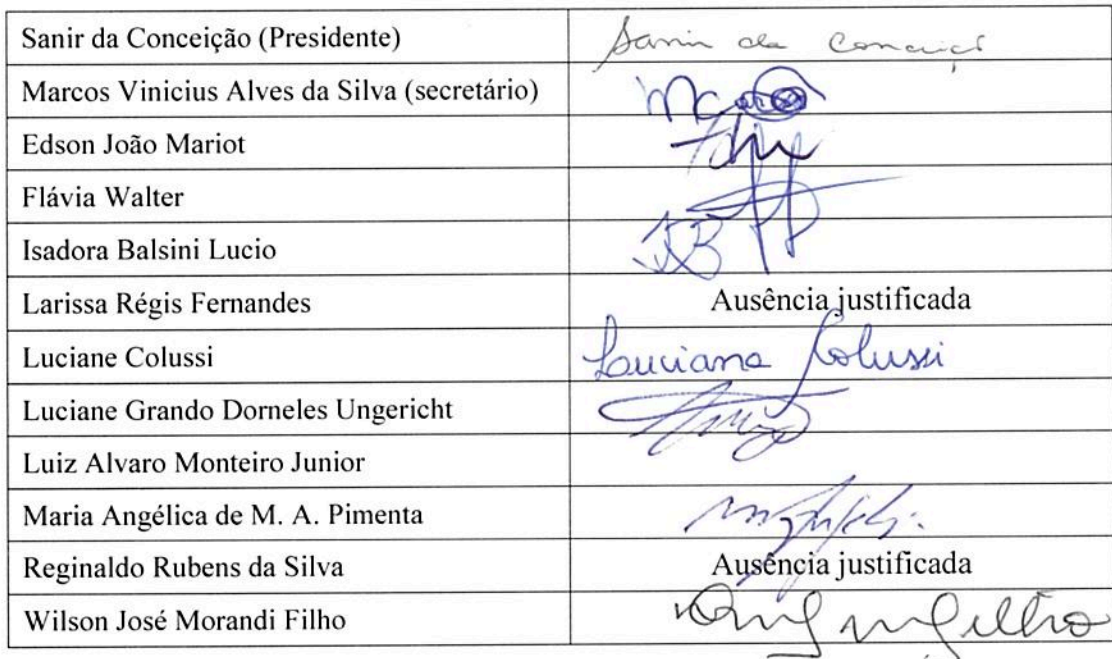 Sanir da Conceição (Presidente) Sanir da Conceiçã
Marcos Vinicius Alves da Silva (secretário)
Edson João Mariot
Flávia Walter
Isadora Balsini Lucio
Larissa Régis Fernandes Ausência justificada
Luciane Colussi Luciane Colussi
Luciane Grando Dorneles Ungericht
Luiz Alvaro Monteiro Junior
Maria Angélica de M. A. Pimenta
Reginaldo Rubens da Silva Ausência justificada
Wilson José Morandi Filho